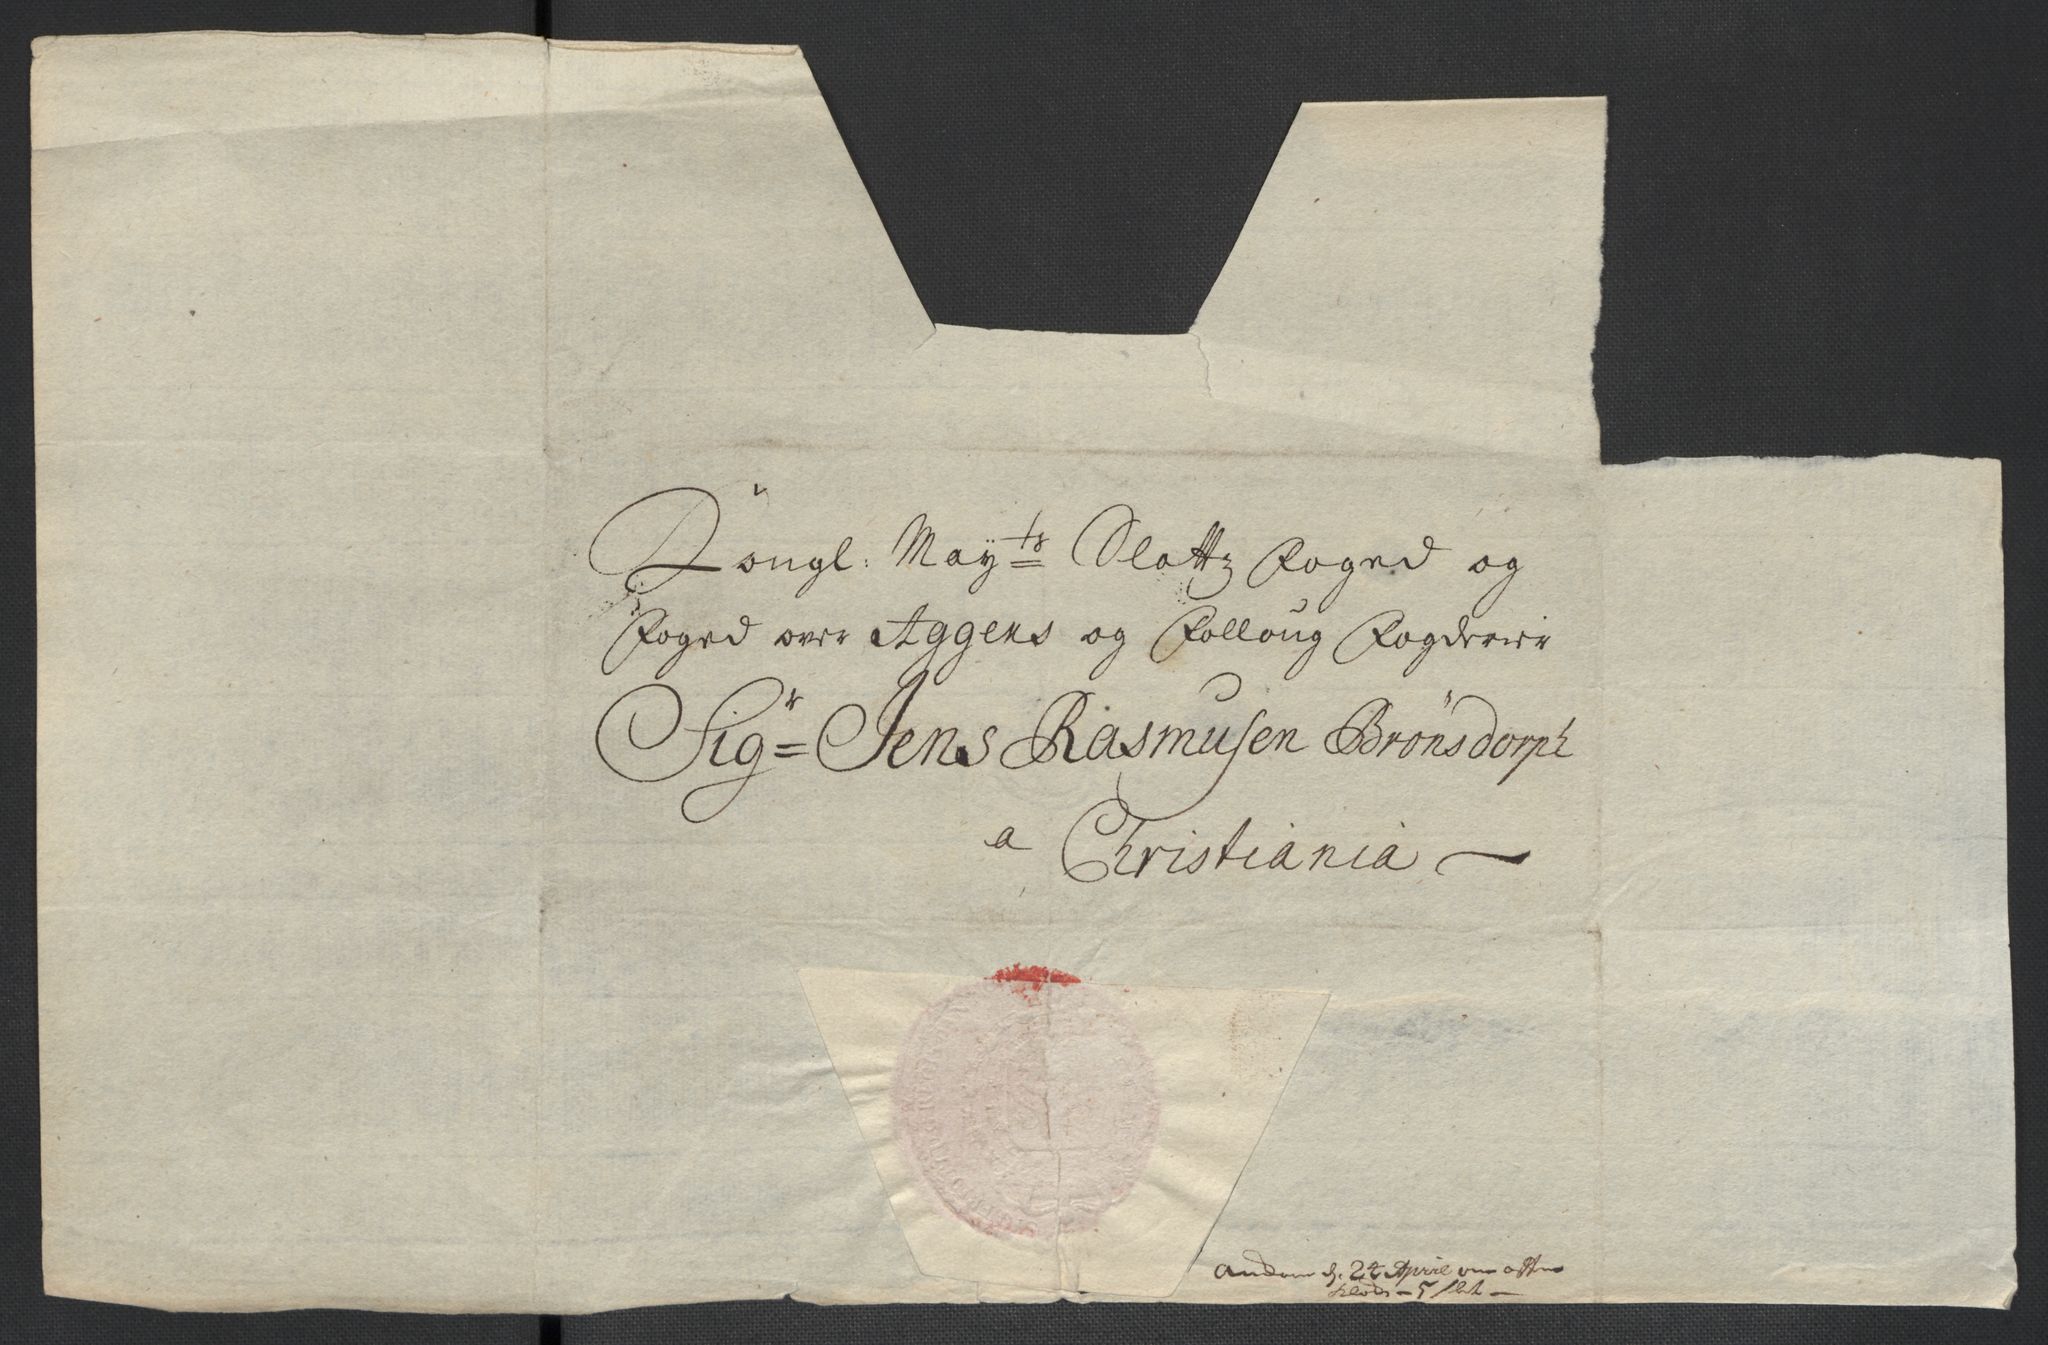 Kongl: May:ts Slottz Foged og
Foged over Aggers og Folloug Fogderier
Sig:r Jens Rasmusen Brönsdorph
a Christiania
d. 24 April om
Klock 5 slet